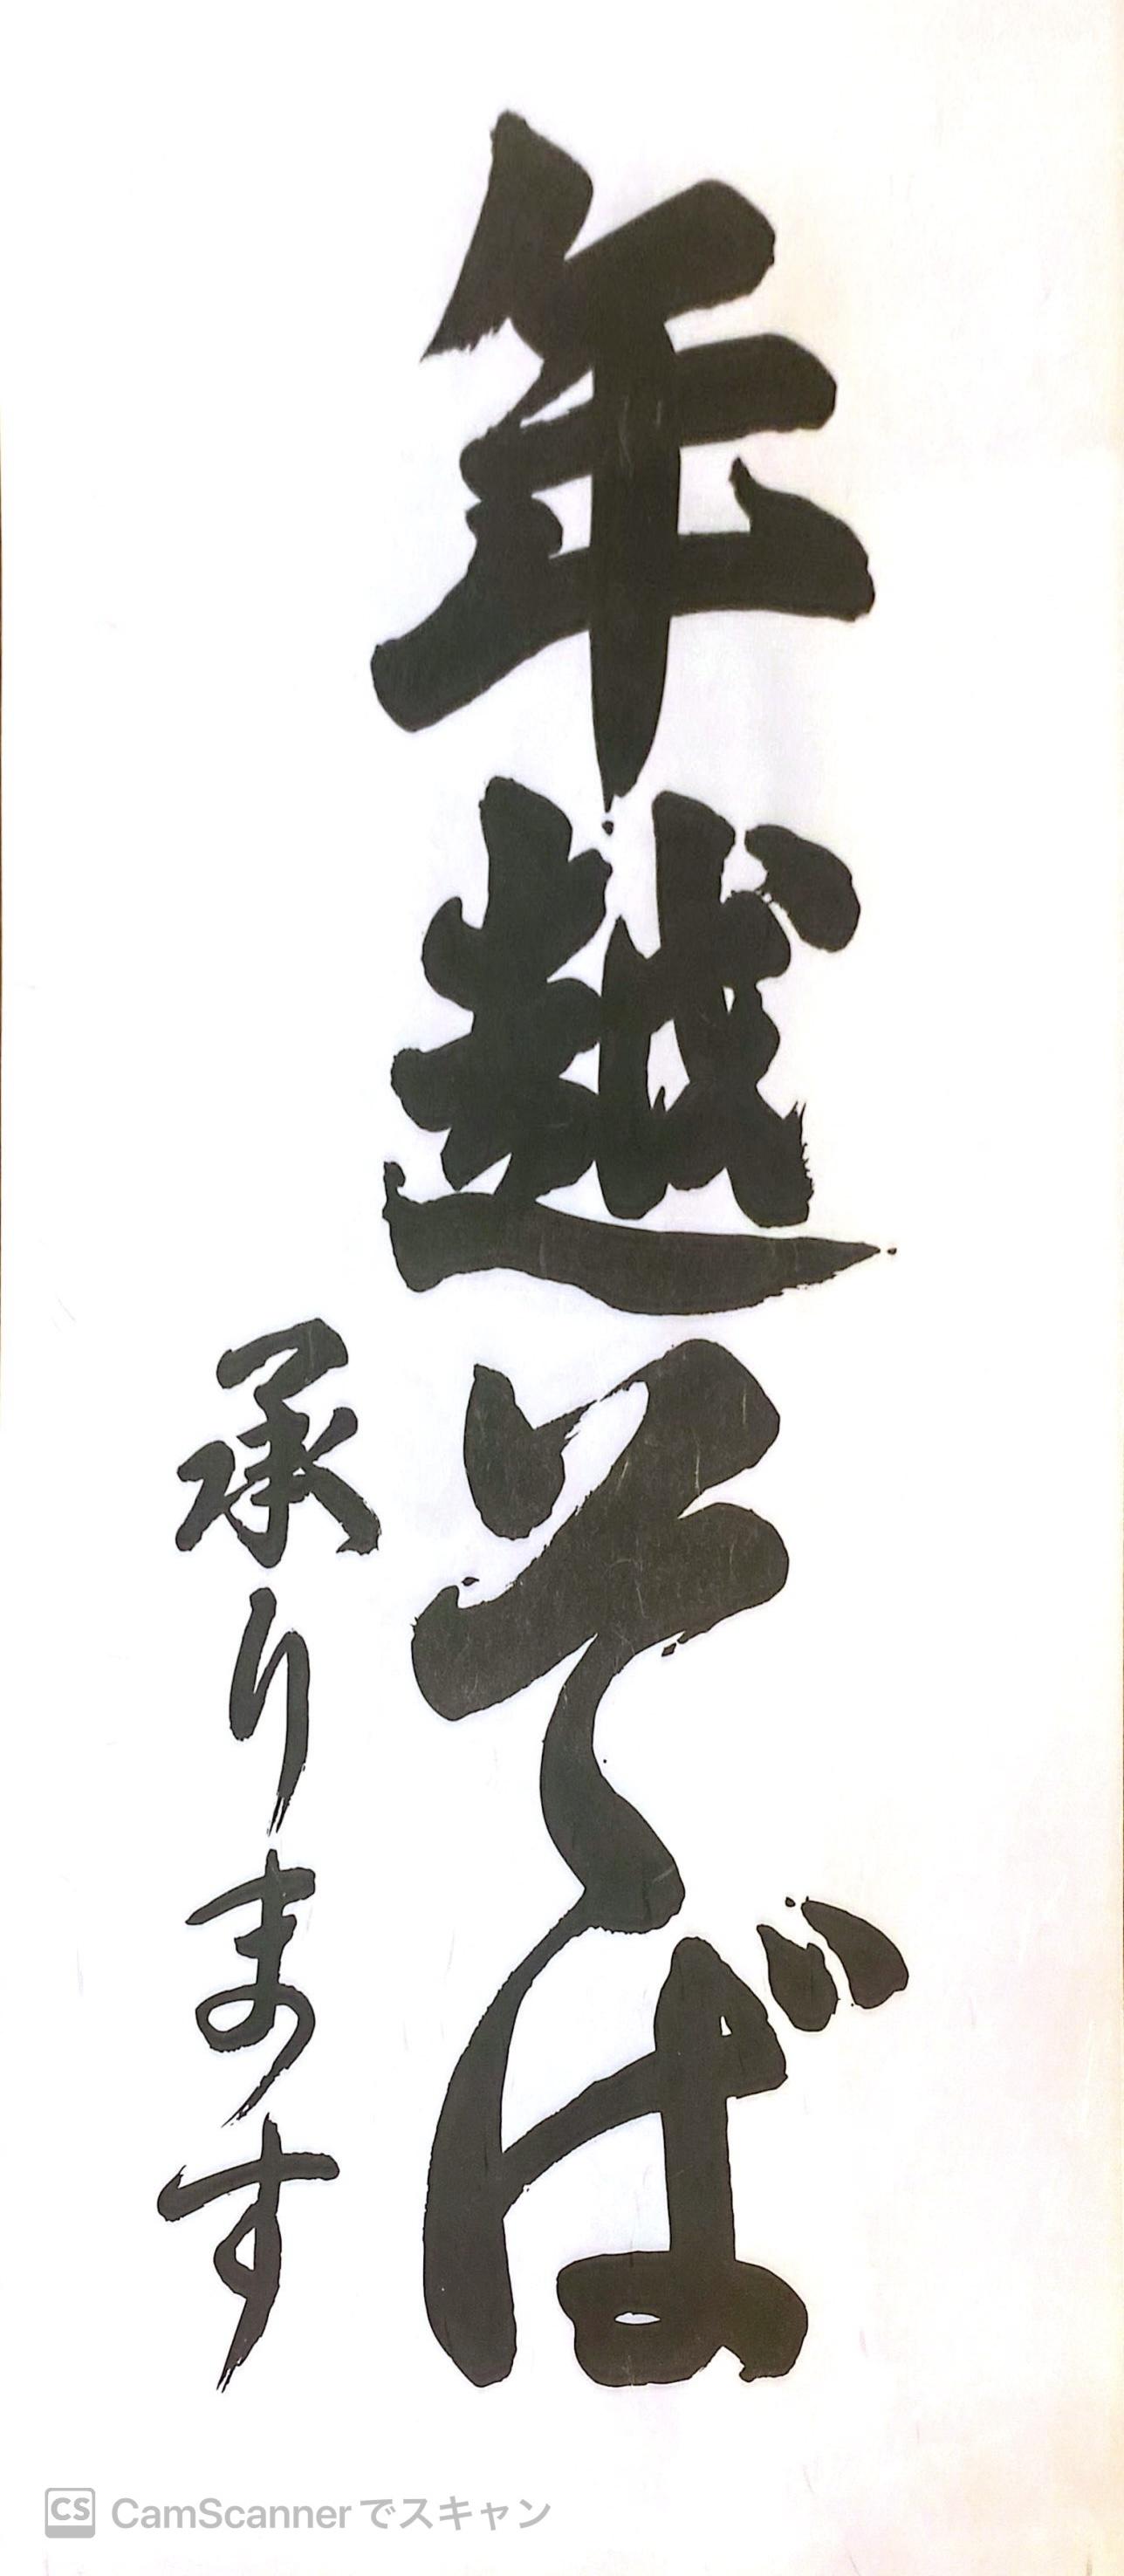 年越そば
承ります
CS CamScannerでスキャン